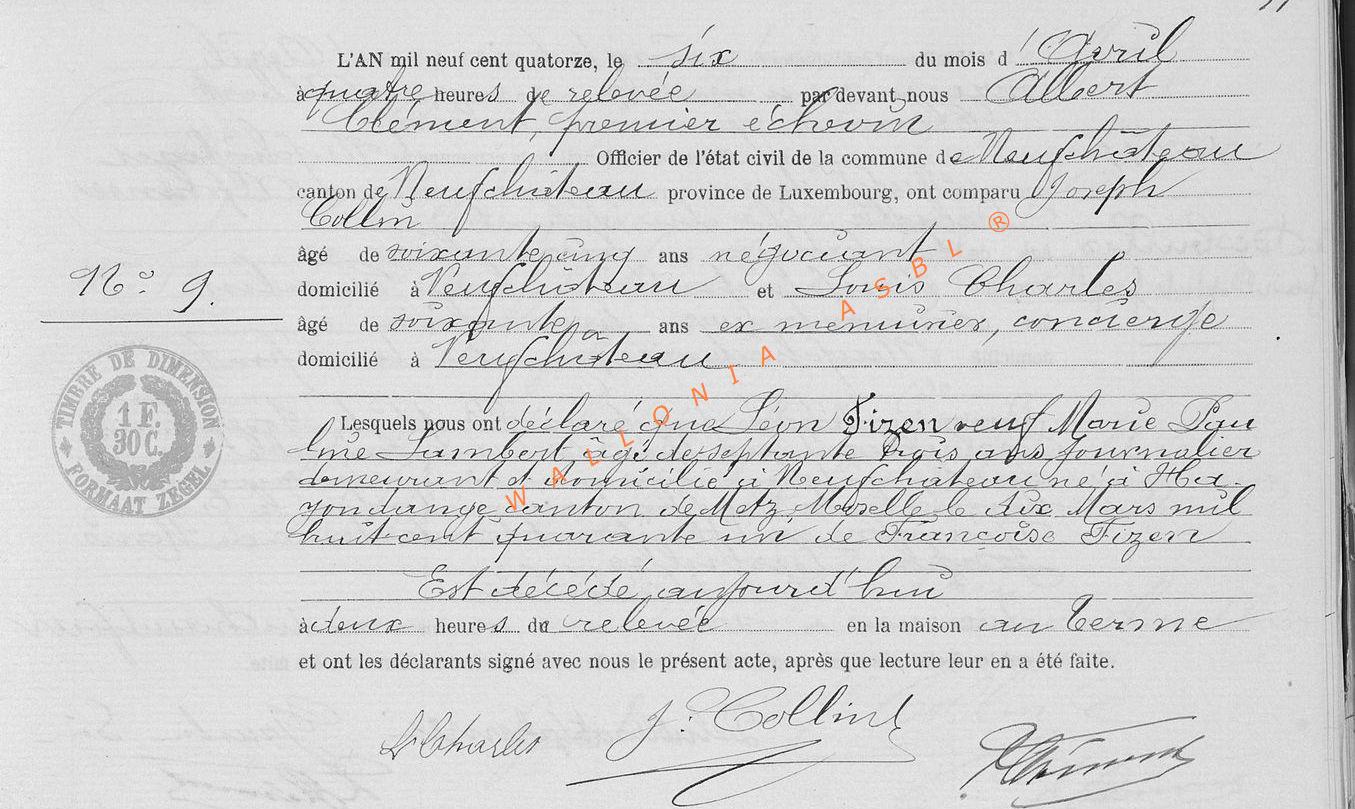 L'AN mil neuf cent quatorze, le six du mois d'Avril
à quatre heures de relevée par devant nous Albert
Clément, premier échevin
Officier de l'état civil de la commune de Neufchâteau
canton de Neufchâteau province de Luxembourg, ont comparu Joseph
Collin
âgé de soixante cinq ans négociant
N° 9.
domicilié à Neufchâteau et Louis Charles
âgé de soixante ans ex menuisier, concierge
domicilié à Neufchâteau
TIMBRE DE DIMENSION
1 F.
30 C.
FORMAAT ZEGEL
Lesquels nous ont déclaré que Léon Fizen veuf Marie Pau
line Lambert, âgé de septante trois ans journalier
demeurant et domicilié à Neufchateau né à Ha-
yondange canton de Metz Moselle le dix Mars mil
huit cent quarante un de Françoise Fizen
Est décédé aujourd'hui
à deux heures de relevée en la maison au Terme
et ont les déclarants signé avec nous le présent acte, après que lecture leur en a été faite.
Ls Charles J. Collin
WALLONIA ASBL ®